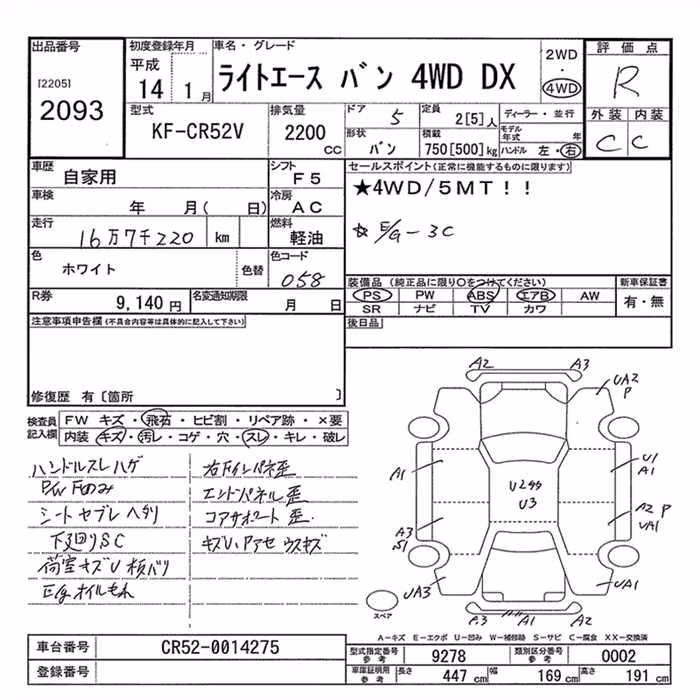 出品番号
[2205]
2093
初度登録年月
平成
14 1月
車名・グレード
ライトエース バン 4WD DX
2WD
・
4WD
評価点
R
型式
KF-CR52V
排気量
2200
CC
ドア 5
定員 2[5]人
形状 バン
積載 750[500]kg
ディーラー・並行
モデル年式 年
ハンドル 左・右
外装 内装
C C
車歴 自家用
シフト F5
車検 年 月( 日)
冷房 AC
走行 16万7千220 km
燃料 軽油
色 ホワイト 色替
色コード 058
R券 9,140円
名変通知期限 月 日
セールスポイント(正常に機能するものに限ります)
★4WD/5MT!!
☆ E/G-3C
装備品(純正品に限り○をつけてください)
PS PW ABS エアB AW
SR ナビ TV カワ
新車保証書
有・無
後日品
注意事項申告欄(不具合内容等は具体的に記入して下さい)
修復歴 有[箇所 ]
検査員記入欄
FW キズ・飛石・ヒビ割・リペア跡・×要
内装 キズ・汚レ・コゲ・穴・スレ・キレ・破レ
ハンドルスレハゲ
P/W Fのみ
シート セブレ ヘタリ
下廻りSC
荷室キズU 板バリ
E/gオイルもれ
右Fインパネ歪
エンドパネル歪
コアサポート歪.
キズU、Pアセ ウスキズ
A2 A3
UA2
P
A1
U1
A1
U2多々
U3
A3
S1
A2 P
UA1
UA3
UA1
A3 A1
U1
スペア
A-キズ E-エクボ U-凹み W-補修跡 S-サビ C-腐食 XX-交換済
車台番号 CR52-0014275
登録番号
型式指定番号 参考 9278
類別区分番号 参考 0002
車庫証明用 参考 長さ 447cm 幅 169cm 高さ 191cm